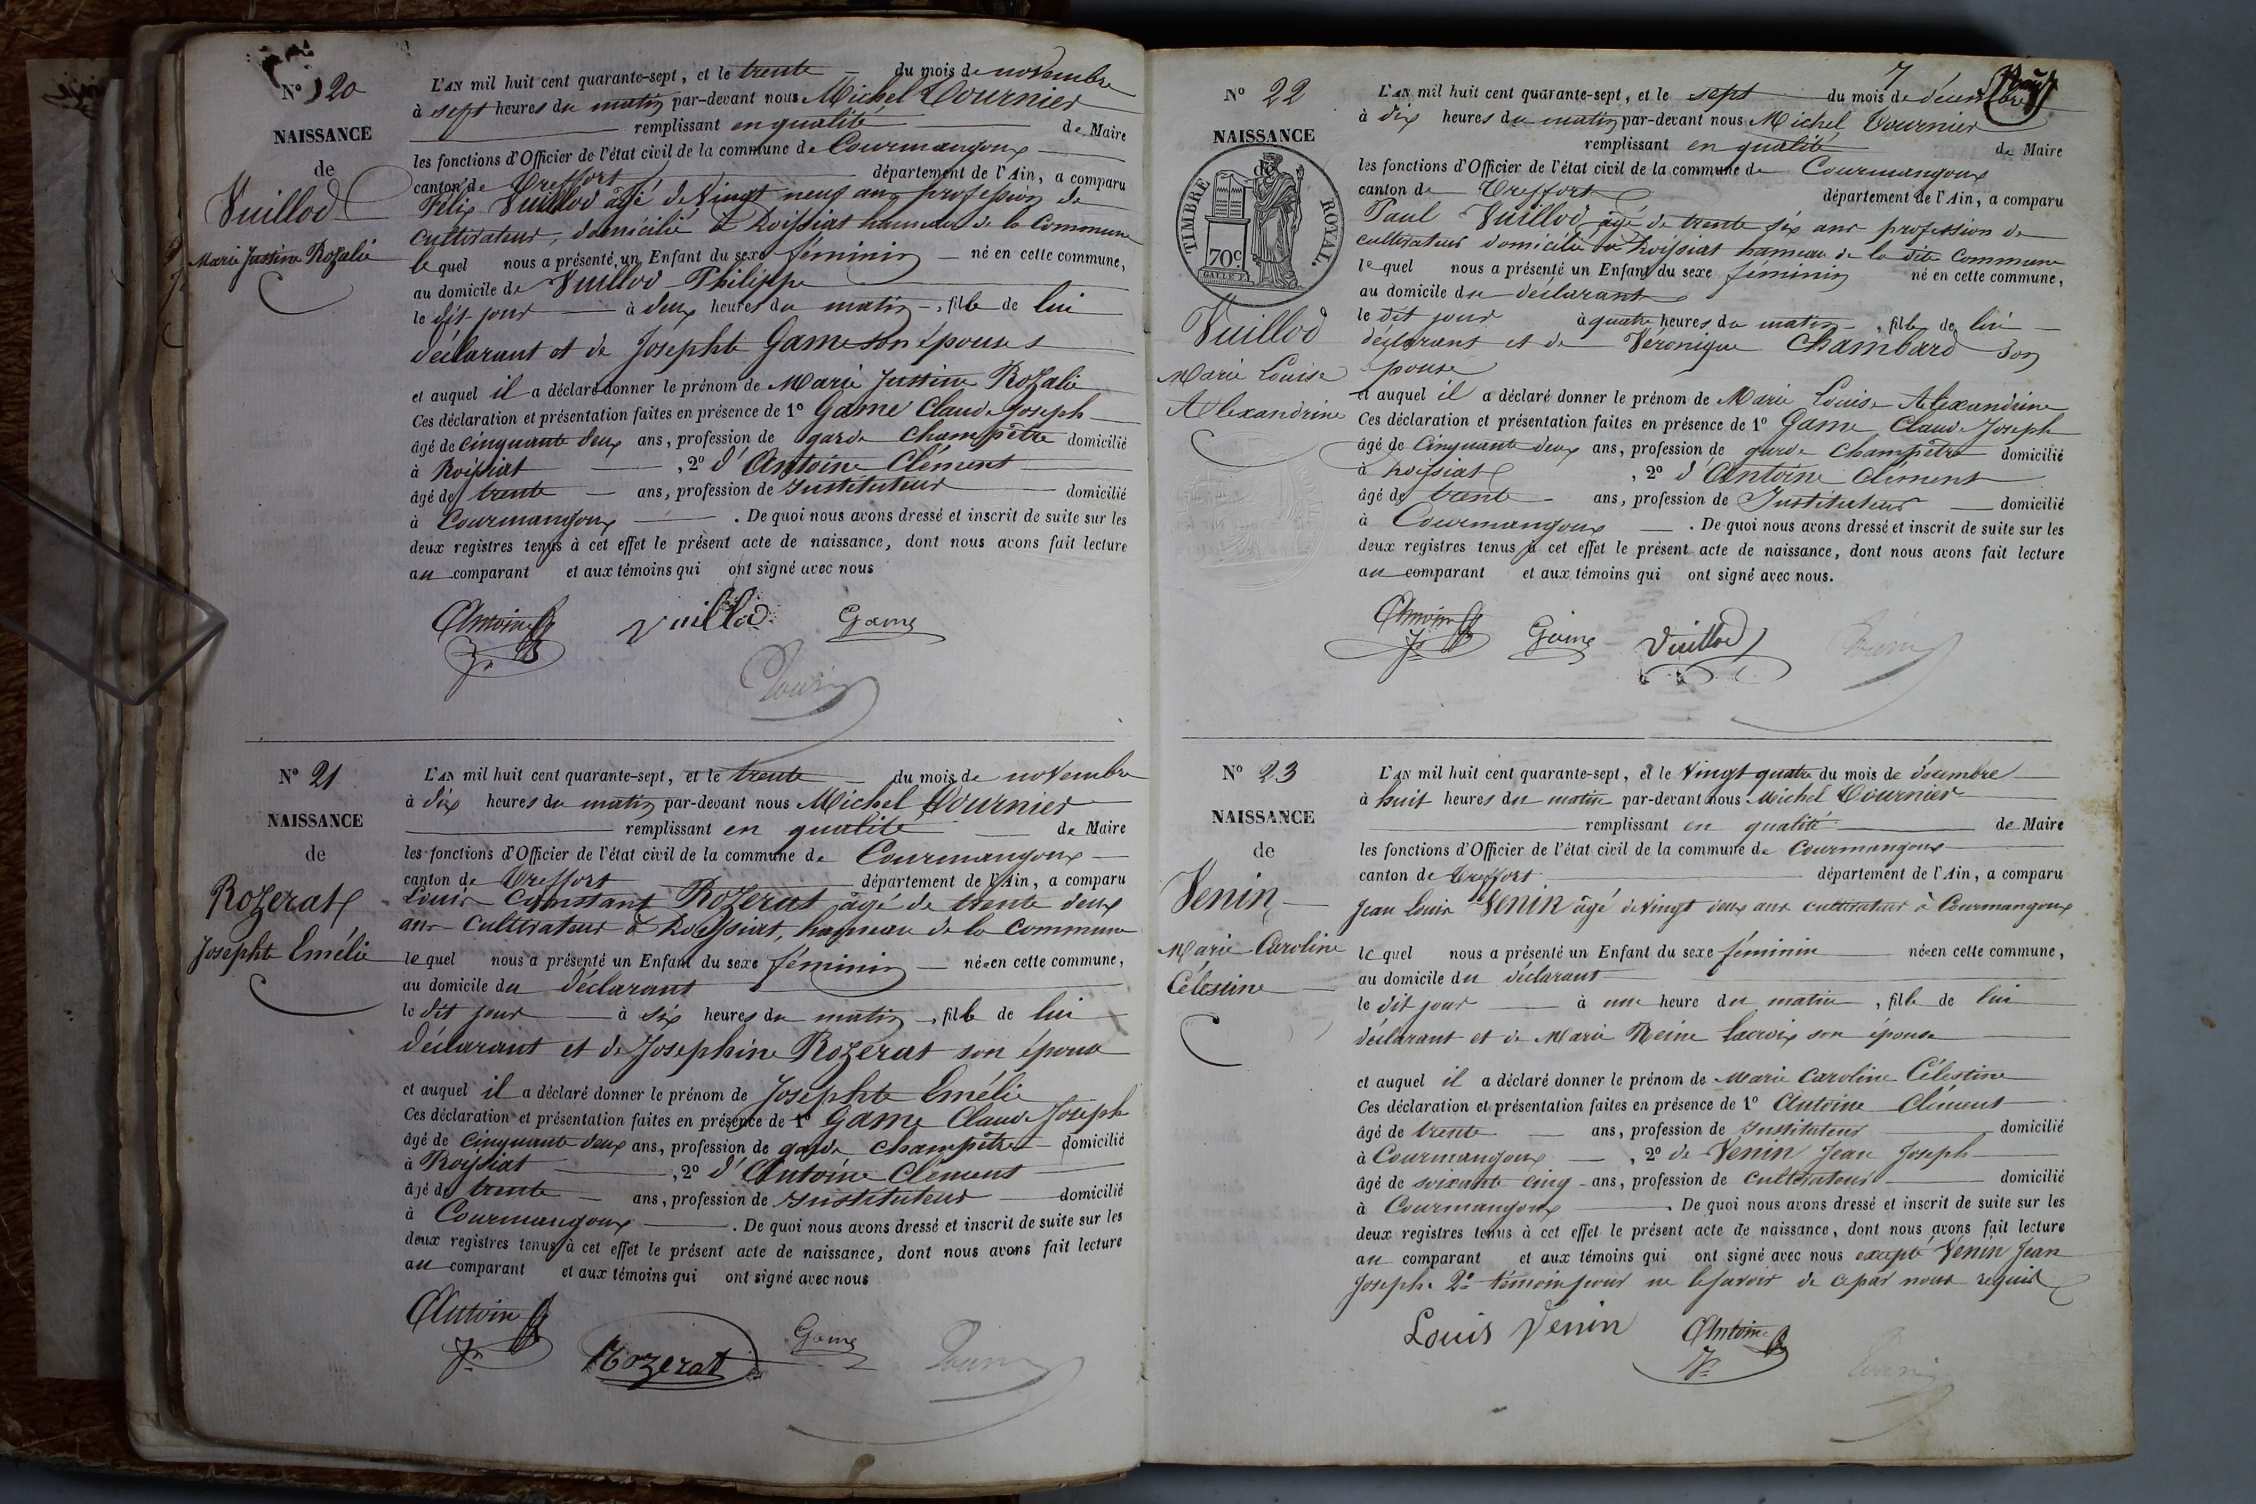 N° 20
NAISSANCE
de
Vuillod
Marie Justine Rozalie
L'AN mil huit cent quarante-sept, et le trente du mois de novembre
à sept heures du matin par-devant nous Michel Tournier
remplissant en qualité de Maire
les fonctions d'Officier de l'état civil de la commune de Courmangoux
canton de Treffort département de l'Ain, a comparu
Félix Vuillod âgé de Vingt neuf ans profession de
cultivateur, domicilié à Roissiat hameau de la Commune
lequel nous a présenté un Enfant du sexe féminin né en cette commune,
au domicile de Vuillod Philippe
le dit jour à deux heures du matin, fille de lui
déclarant et de Josephte Game son épouse
et auquel il a déclaré donner le prénom de Marie Justine Rozalie
Ces déclaration et présentation faites en présence de 1° Game Claude Joseph
âgé de cinquante deux ans, profession de garde champêtre domicilié
à Roissiat, 2° d'Antoine Clément
âgé de trente ans, profession de Instituteur domicilié
à Courmangoux. De quoi nous avons dressé et inscrit de suite sur les
deux registres tenus à cet effet le présent acte de naissance, dont nous avons fait lecture
au comparant et aux témoins qui ont signé avec nous
Antoine Vuillod Game
N° 21
NAISSANCE
de
Rozerat
Josephte Emélie
L'AN mil huit cent quarante-sept, et le trente du mois de novembre
à dix heures du matin par-devant nous Michel Tournier
remplissant en qualité de Maire
les fonctions d'Officier de l'état civil de la commune de Courmangoux
canton de Treffort département de l'Ain, a comparu
Louis Constant Rozerat âgé de trente deux
ans cultivateur à Roissiat, hameau de la Commune
lequel nous a présenté un Enfant du sexe féminin née en cette commune,
au domicile du déclarant
le dit jour à six heures du matin, fille de lui
déclarant et de Josephine Rozerat son épouse
et auquel il a déclaré donner le prénom de Josephte Emélie
Ces déclaration et présentation faites en présence de 1° Game Claude Joseph
âgé de cinquante deux ans, profession de garde champêtre domicilié
à Roissiat, 2° d'Antoine Clément
âgé de trente ans, profession de Instituteur domicilié
à Courmangoux. De quoi nous avons dressé et inscrit de suite sur les
deux registres tenus à cet effet le présent acte de naissance, dont nous avons fait lecture
au comparant et aux témoins qui ont signé avec nous
Antoine Rozerat Game
7
N° 22
NAISSANCE
de
TIMBRE ROYAL.
70c
Vuillod
Marie Louise
Alexandrine
L'AN mil huit cent quarante-sept, et le sept du mois de décembre
à dix heures du matin par-devant nous Michel Tournier
remplissant en qualité de Maire
les fonctions d'Officier de l'état civil de la commune de Courmangoux
canton de Treffort département de l'Ain, a comparu
Paul Vuillod, âgé de trente six ans profession de
cultivateur domicilié à Roissiat hameau de la dite Commune
lequel nous a présenté un Enfant du sexe féminin né en cette commune,
au domicile du déclarant
le dit jour à quatre heures du matin, fille de lui
déclarant et de Véronique Chambard son
pouse
et auquel il a déclaré donner le prénom de Marie Louise Alexandrine
Ces déclaration et présentation faites en présence de 1° Game Claude Joseph
âgé de Cinquante deux ans, profession de garde champêtre domicilié
à Roissiat, 2° d'Antoine Clément
âgé de trente ans, profession de Instituteur domicilié
à Courmangoux. De quoi nous avons dressé et inscrit de suite sur les
deux registres tenus à cet effet le présent acte de naissance, dont nous avons fait lecture
au comparant et aux témoins qui ont signé avec nous.
Antoine Game Vuillod
N° 23
NAISSANCE
de
Venin
Marie Caroline
Célestine
L'AN mil huit cent quarante-sept, et le Vingt quatre du mois de décembre
à huit heures du matin par-devant nous Michel Tournier
remplissant en qualité de Maire
les fonctions d'Officier de l'état civil de la commune de Courmangoux
canton de Treffort département de l'Ain, a comparu
Jean Louis Venin âgé de vingt deux ans cultivateur à Courmangoux
lequel nous a présenté un Enfant du sexe féminin née en cette commune,
au domicile du déclarant
le dit jour à une heure du matin, fille de lui
déclarant et de Marie Reine Lacroix son épouse
et auquel il a déclaré donner le prénom de Marie Caroline Célestine
Ces déclaration et présentation faites en présence de 1° Antoine Clément
âgé de trente ans, profession de Instituteur domicilié
à Courmangoux, 2° de Venin Jean Joseph
âgé de soixante cinq ans, profession de cultivateur domicilié
à Courmangoux. De quoi nous avons dressé et inscrit de suite sur les
deux registres tenus à cet effet le présent acte de naissance, dont nous avons fait lecture
au comparant et aux témoins qui ont signé avec nous excepté Venin Jean
Joseph 2° témoin pour ne le savoir de ce par nous requis
Louis Venin Antoine